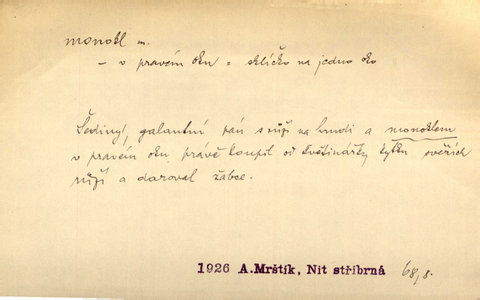 monokl m.
– v pravém oku = sklíčko na jedno oko
Šedivý, galantní pán s růží na hrudi a monoklem
v pravém oku právě koupil od květinářky kytku svěžích
růží a daroval žabce.
1926 A.Mrštík, Nit stříbrná 68,8.